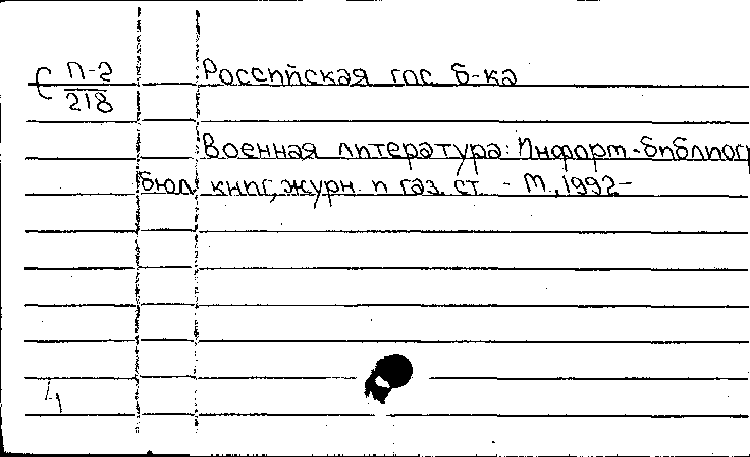 С П-2 Российская гос. б-ка
218
Военная литература: Информ.-библиогр
бюл. книг, журн. и газ. ст. - М., 1992-
4